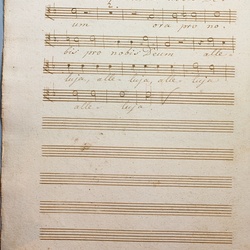 um ora pro no-
bis pro nobis Deum alle-
luja, alle- luja, alle- luja
alle- luja.